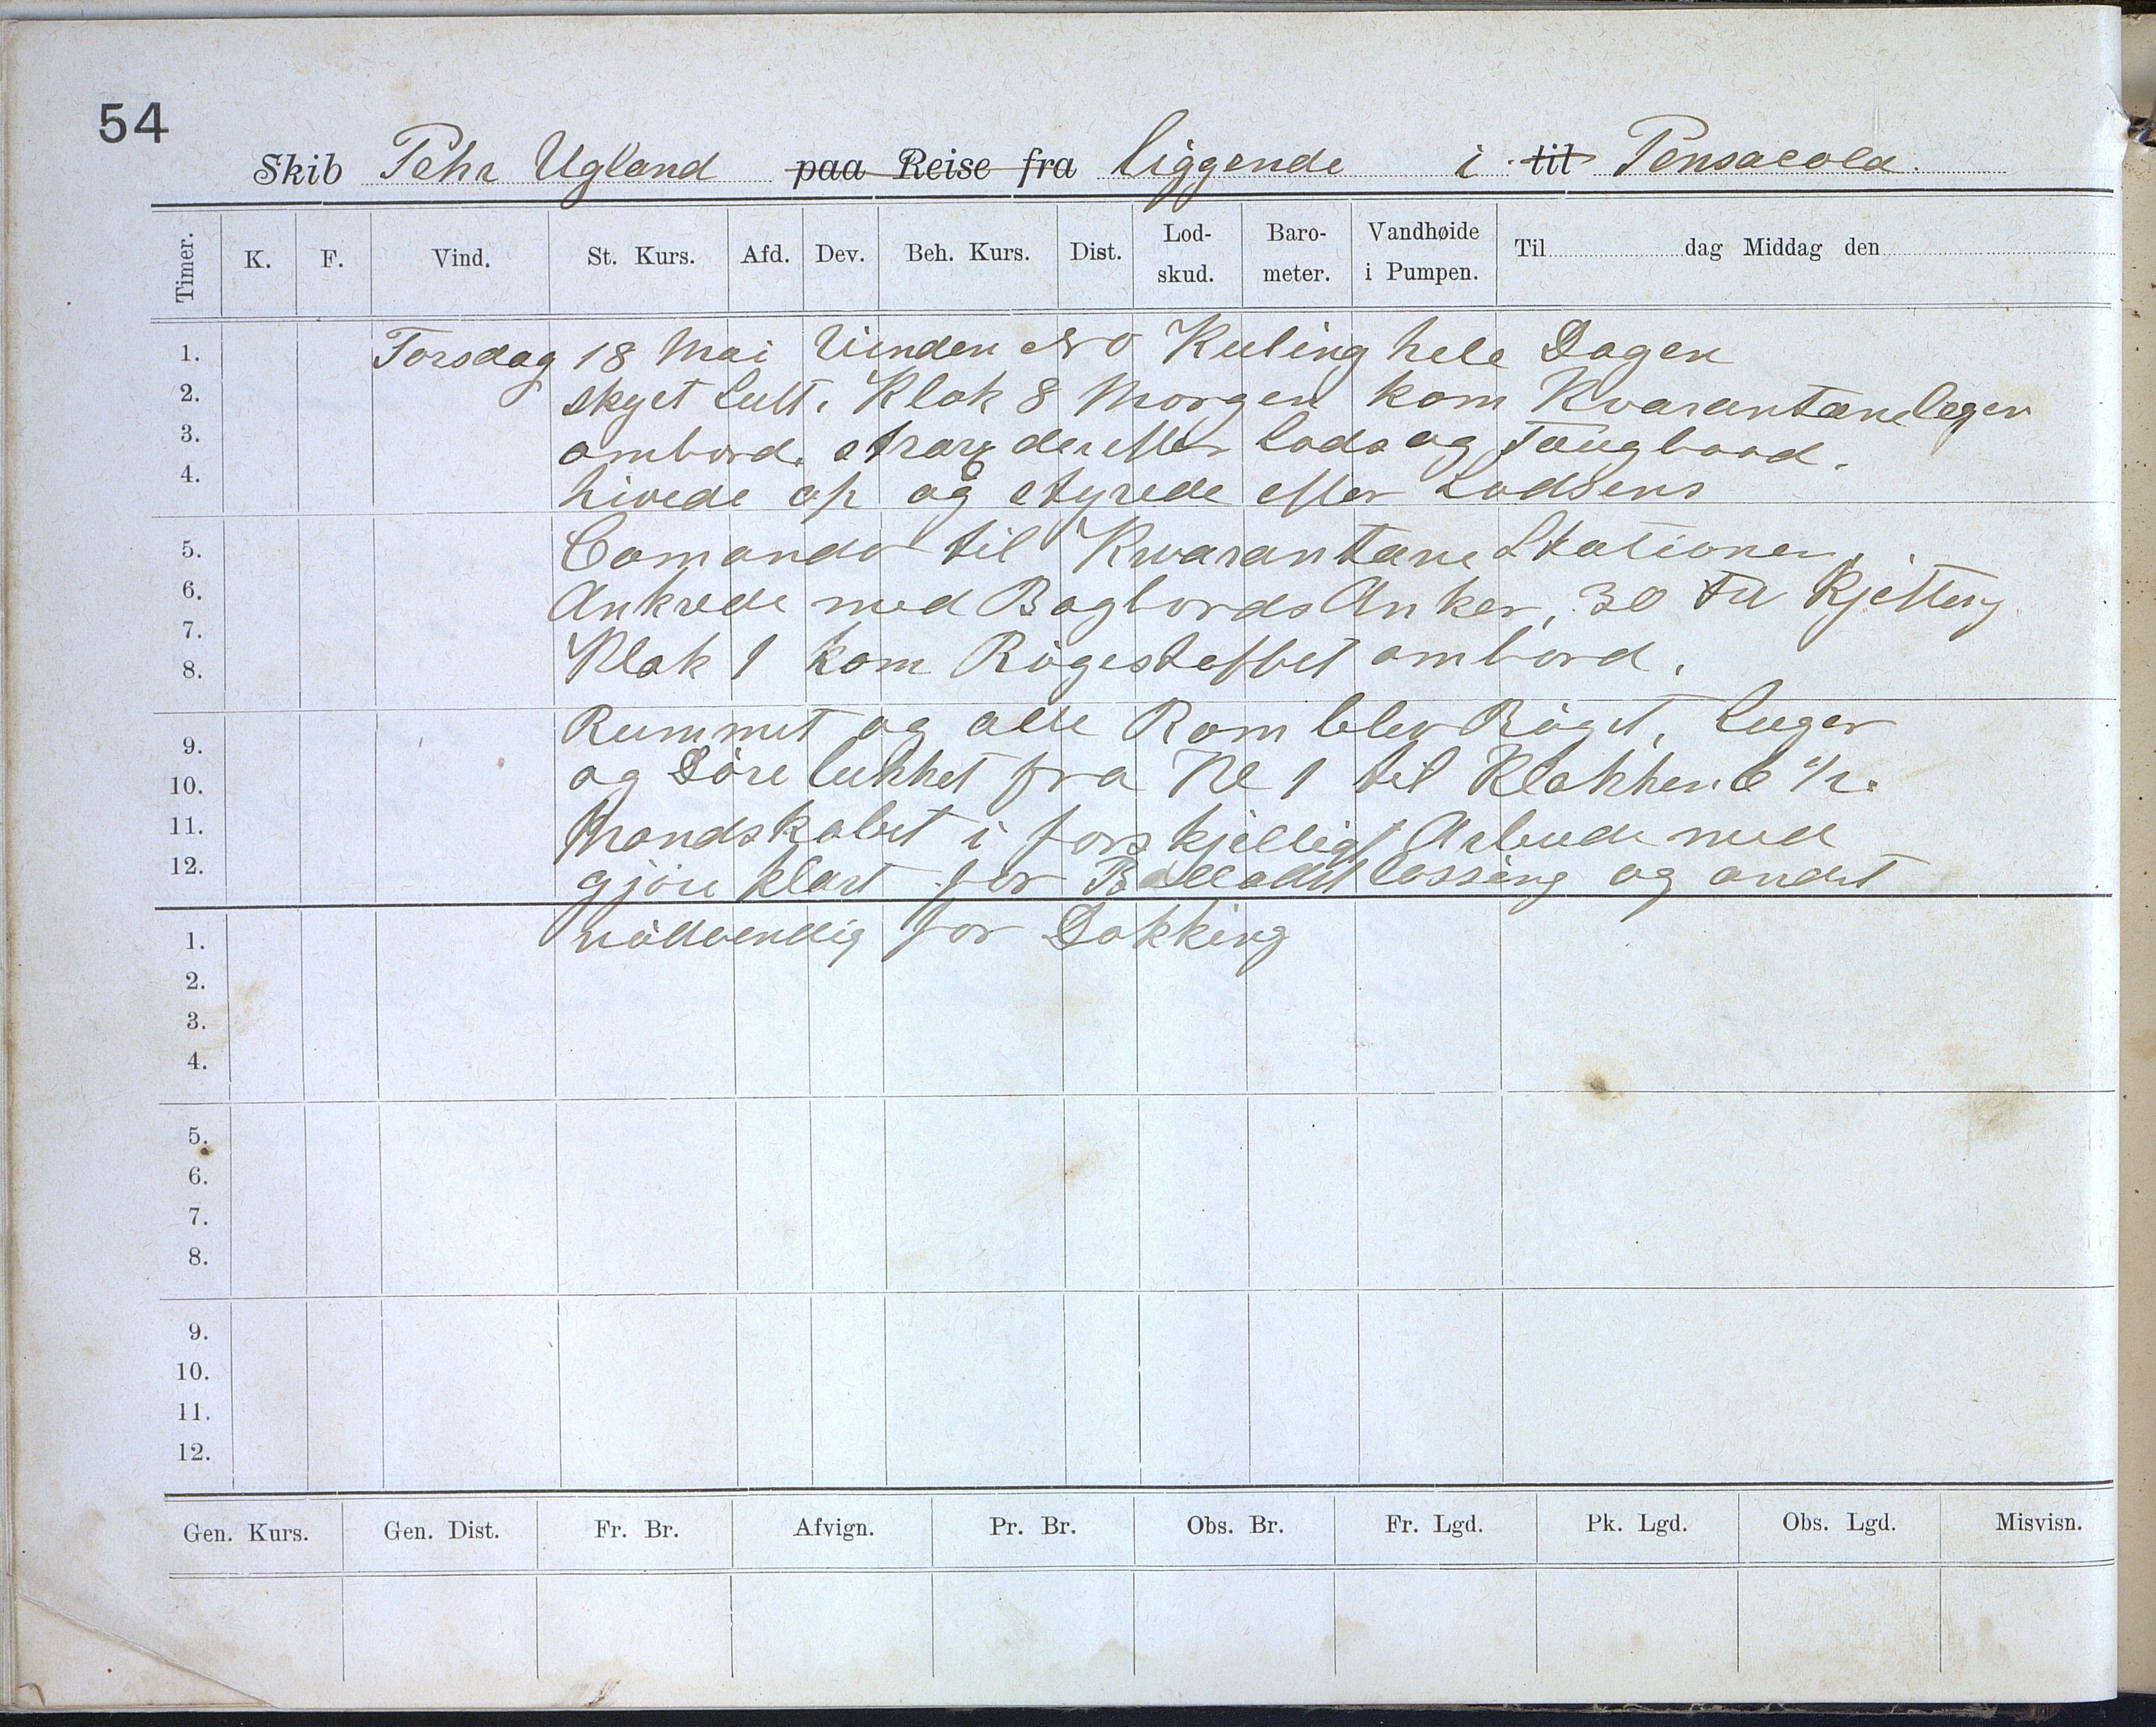 54
Skib Pehr Ugland paa Reise fra liggende i til Pensacola.
Timer. K. F. Vind. St. Kurs. Afd. Dev. Beh. Kurs. Dist. Lod-skud. Baro-meter. Vandhøide i Pumpen. Til dag Middag den
1. Torsdag 18 Mai Vinden NO Kuling hele Dagen
2. skyet Luft. Klok 8 Morgen kom Kvarantæneleger
3. ombord. strax derefter Lods og Taugbaad.
4. hivede op og styrede efter Lodsens
5. Comando til Kvarantæne Stationen.
6. Ankrede med Bagbords Anker, 30 Fv Kjetting
7. Klok 1 kom Røgestoffet ombord.
8.
9. Rummet og alle Rom blev Røget, Luger
10. og Døre lukket fra Kl 1 til Klokken 6 1/2.
11. Mandskabet i forskjelligt Arbeide med
12. gjøre klart for Ballastlossing og andet
1. nødvendig for Dokking
2.
3.
4.
5.
6.
7.
8.
9.
10.
11.
12.
Gen. Kurs. Gen. Dist. Fr. Br. Afvign. Pr. Br. Obs. Br. Fr. Lgd. Pk. Lgd. Obs. Lgd. Misvisn.